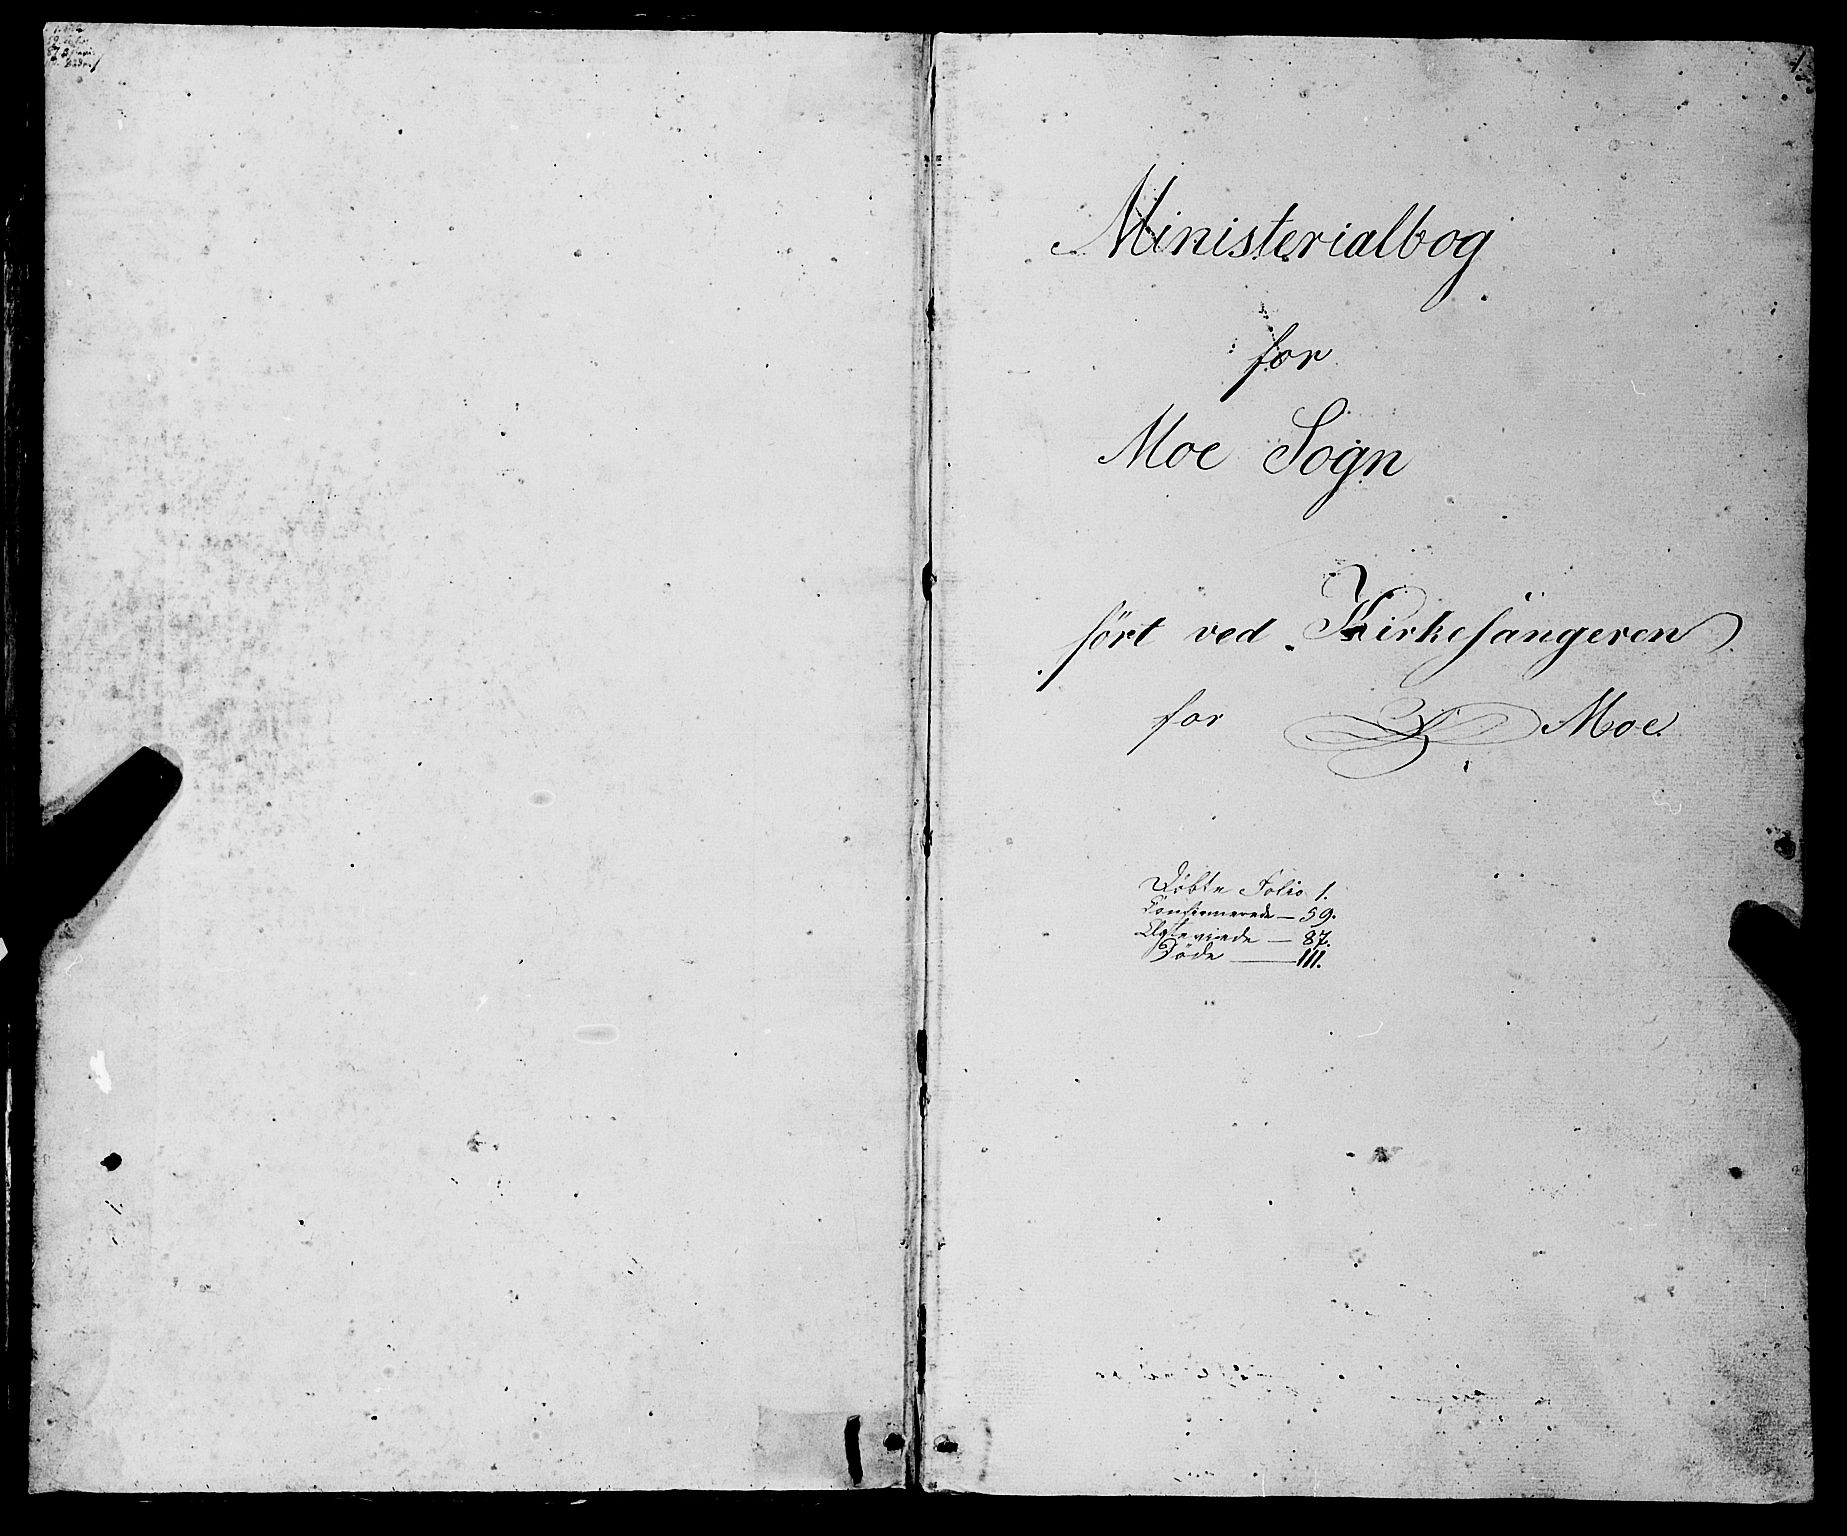 1.
Ministerialbog
for
Moe Sogn
ført ved Kirkesangeren
for Moe.
Døbte Folio 1.
Confirmerede — 59.
Ægteviede — 87.
Døde — 111.